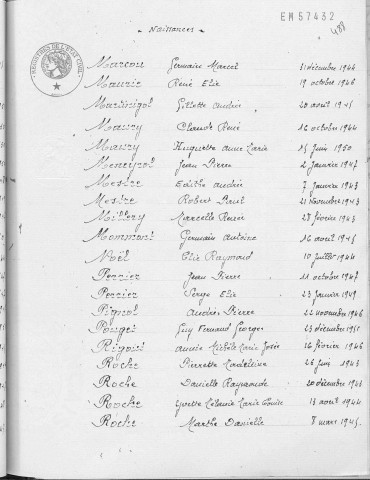 EM57432
488
Naissances
REGISTRES DE L'ETAT CIVIL
Marcou Germain Marcel 31 décembre 1944
Maurie René Elie 19 octobre 1946
Martinigol Gillette Andrée 20 août 1945
Maury Claude René 16 octobre 1944
Maury Huguette Anne Marie 15 Juin 1950
Meneyrol Jean Pierre 2 Janvier 1947
Mestre Edithe Andrée 7 Janvier 1943
Mestre Robert 21 novembre 1943
Millery Marcelle Renée 28 février 1943
Mompont Germain Antoine 16 août 1945
Noël Elie Raymond 10 Juillet 1944
Perrier Jean Pierre 11 octobre 1947
Perrier Serge Elie 23 Janvier 1949
Pignol André Pierre 22 novembre 1946
Pouget Guy Fernand Georges 23 décembre 1950
Rigoux Annie Michèle Marie Josée 26 février 1946
Roche Pierrette Madeleine 26 Juin 1943
Roche Danielle Raymonde 20 décembre 1943
Roche Yvette Mélanie Marie Louise 13 août 1944
Roche Marthe Danielle 8 mars 1945